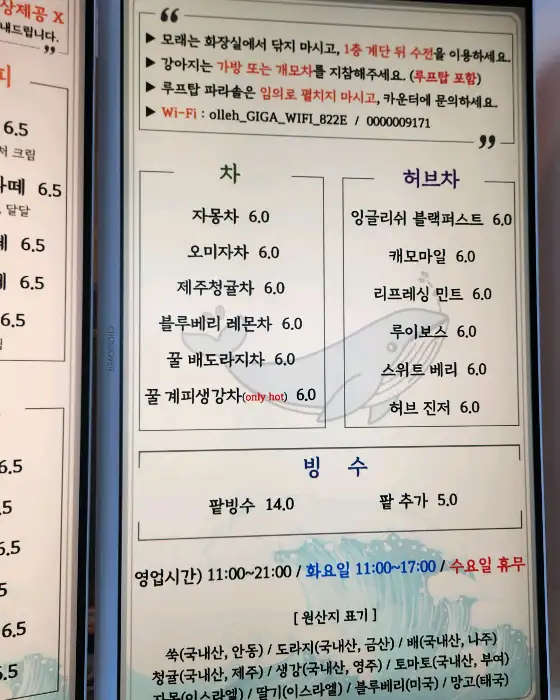 상제공 X
내드립니다.
피
6.5
처 크림
라떼 6.5
, 달달
6.5
6.5
6.5
6.5
6.5
6.5
▶ 모래는 화장실에서 닦지 마시고, 1층 계단 뒤 수전을 이용하세요.
▶ 강아지는 가방 또는 개모차를 지참해주세요. (루프탑 포함)
▶ 루프탑 파라솔은 임의로 펼치지 마시고, 카운터에 문의하세요.
▶ Wi-Fi : olleh_GIGA_WIFI_822E / 0000009171
차
자몽차 6.0
오미자차 6.0
제주청귤차 6.0
블루베리 레몬차 6.0
꿀 배도라지차 6.0
꿀 계피생강차(only hot) 6.0
허브차
잉글리쉬 블랙퍼스트 6.0
캐모마일 6.0
리프레싱 민트 6.0
루이보스 6.0
스위트 베리 6.0
허브 진저 6.0
빙 수
팥빙수 14.0
팥 추가 5.0
영업시간) 11:00~21:00 / 화요일 11:00~17:00 / 수요일 휴무
[ 원산지 표기 ]
쑥(국내산, 안동) / 도라지(국내산, 금산) / 배(국내산, 나주)
청귤(국내산, 제주) / 생강(국내산, 영주) / 토마토(국내산, 부여)
자몽(이스라엘) / 딸기(이스라엘) / 블루베리(미국) / 망고(태국)